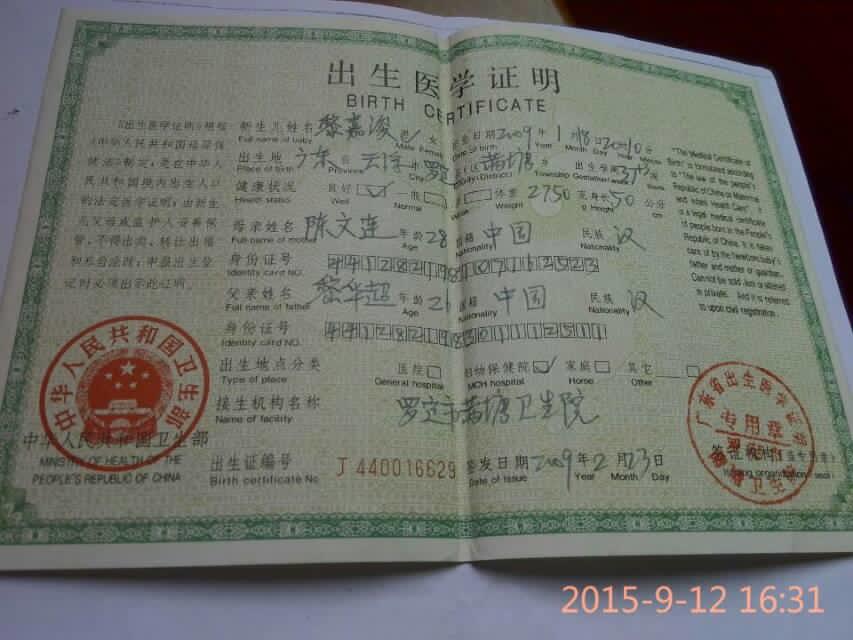 出生医学证明
BIRTH CERTIFICATE
《出生医学证明》根据
《中华人民共和国母婴保
健法》制定,是在中华人
民共和国境内出生人口
的法定医学证明,由新生
儿父母或监护人妥善保
管,不得出卖、转让、出借
和私自涂改,申报出生登
记时必须出示此证明。
新生儿姓名 黎嘉浚 男 女 出生日期 2009 年 1 月 18 日
Full name of baby Male Female Date of birth Year Month Day Hour Minute
出生地 广东 云浮 市 罗定 (区) 䓣塘 出生孕周 37+3 周
Place of birth Province City (District) Township Gestation week
健康状况 良好 一般 体重 2750 克 身长 50 公分
Health status Well Normal Weight g Height cm
母亲姓名 陈文连 年龄 28 国籍 中国 民族 汉
Full name of mother Age Nationality Nationality
身份证号
Identity card NO.
父亲姓名 黎华超 年龄 国籍 中国 民族 汉
Full name of father Age Nationality Nationality
身份证号
Identity card NO.
出生地点分类 医院 妇幼保健院 家庭 其它
Type of place General hospital MCH hospital Home Other
接生机构名称 罗定市 塘卫生院
Name of facility
出生证编号 J 440016629 签发日期 2009 年 2 月 23 日
Birth certificate No Date of issue Year Month Day
"The Medical Certificate of
Birth" is formulated according
to "The law of the people's
Republic of China on Maternal
and Infant Health Care". It
is a legal medical certificate
of people born in the People's
Republic of China. It is taken
care of by the new born baby's
father and mother or guardian.
Cannot be sold, lent or altered
in private. And it is referred
to upon civil registration.
中华人民共和国卫生部
中华人民共和国卫生部
MINISTRY OF HEALTH OF THE
PEOPLE'S REPUBLIC OF CHINA
广东省出生医学证明
专用章
签证机构
Issuing organization seal
2015-9-12 16:31